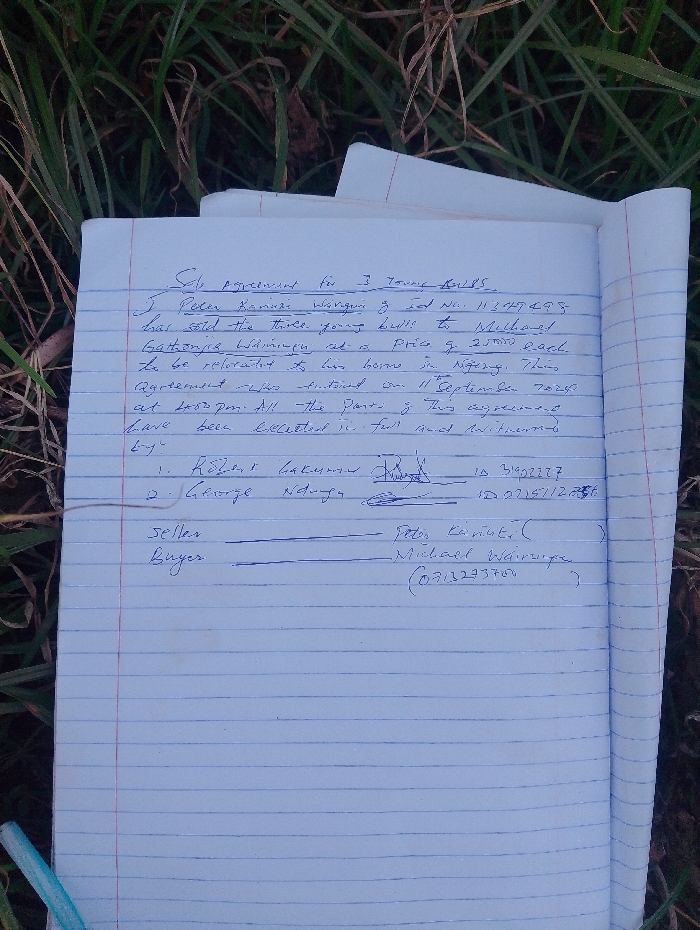 Sale Agreement for 3 Young Bulls.
I Peter Kariuki Wangui of Id No. 11349498
has sold the three young bulls to Michael
Gathogo Wainaina at a price of each
to be relocated to his home in This
agreement was entered on 11th September 2024
at pm. All the Parts of This agreement
have been executed in full and witnessed
by:-
1. Robert Gakuru ID
2. George Ndungu ID
Seller Peter Kariuki ( )
Buyer Michael
(0713273700 )